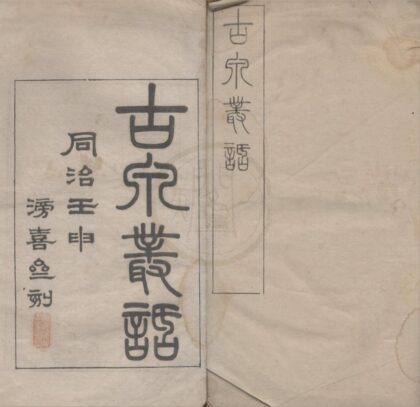 古泉叢話
古泉叢話
同治壬申
滂喜齋刻